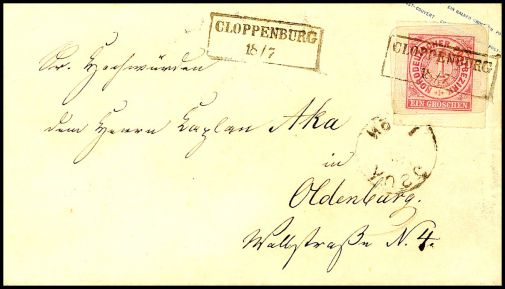 CLOPPENBURG
18/7
CLOPPENBURG
18/7
NORDDEUTSCHER POSTBEZIRK
EIN GROSCHEN
Sr. Hochwürden
dem Herrn Kaplan Aka
in
Oldenburg.
Wallstraße N. 4.